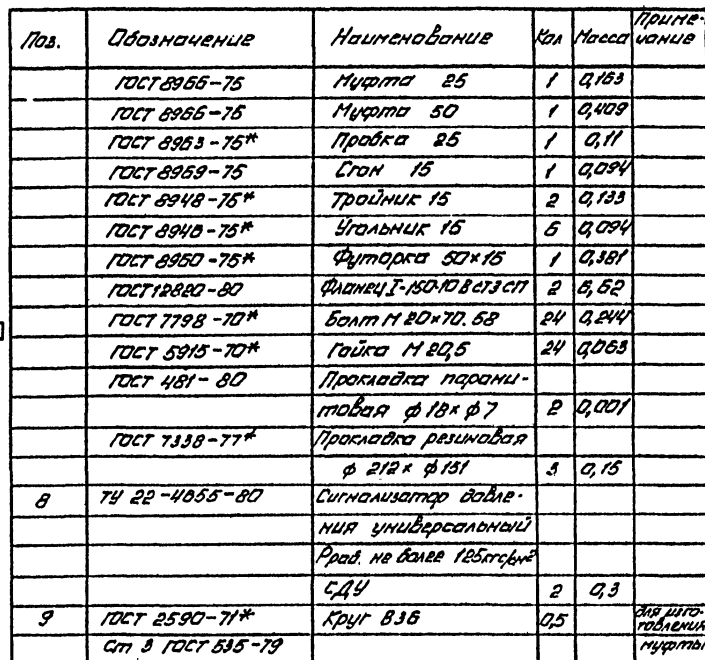 Поз. Обозначение Наименование Кол Масса Приме-
чание
ГОСТ 8966-75 Муфта 25 1 0,163
ГОСТ 8966-75 Муфта 50 1 0,409
ГОСТ 8963-75* Пробка 25 1 0,11
ГОСТ 8969-75 Сгон 15 1 0,094
ГОСТ 8948-75* Тройник 15 2 0,133
ГОСТ 8946-75* Угольник 15 6 0,094
ГОСТ 8960-75* Футорка 50×15 1 0,381
ГОСТ 12820-80 Фланец I-150-10 В СТ3 СП 2 6,62
ГОСТ 7798-70* Болт М 20×70.68 24 0,244
ГОСТ 5915-70* Гайка М 20,5 24 0,063
ГОСТ 481-80 Прокладка парани-
товая ф 18× ф 7 2 0,001
ГОСТ 7338-77* Прокладка резиновая
ф 212× ф 151 3 0,15
8 ТУ 22-4655-80 Сигнализатор давле-
ния универсальный
Рраб. не более 125кгс/см²
СДУ 2 0,3
9 ГОСТ 2590-71* Круг В36 0,5 для изго-
товления
Ст 3 ГОСТ 535-79 муфты